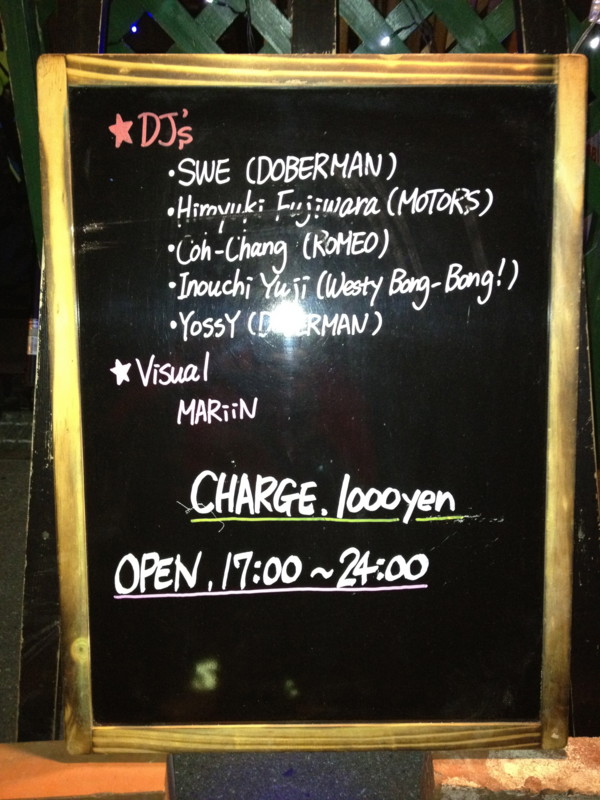 ★DJ's
・SWE (DOBERMAN)
・Hiroyuki Fujiwara (MOTORS)
・Coh-Chang (ROMEO)
・Inouchi Yuji (Westy Bong-Bong!)
・YossY (DOBERMAN)
★Visual
MARiiN
CHARGE. 1000yen
OPEN. 17:00 ~ 24:00